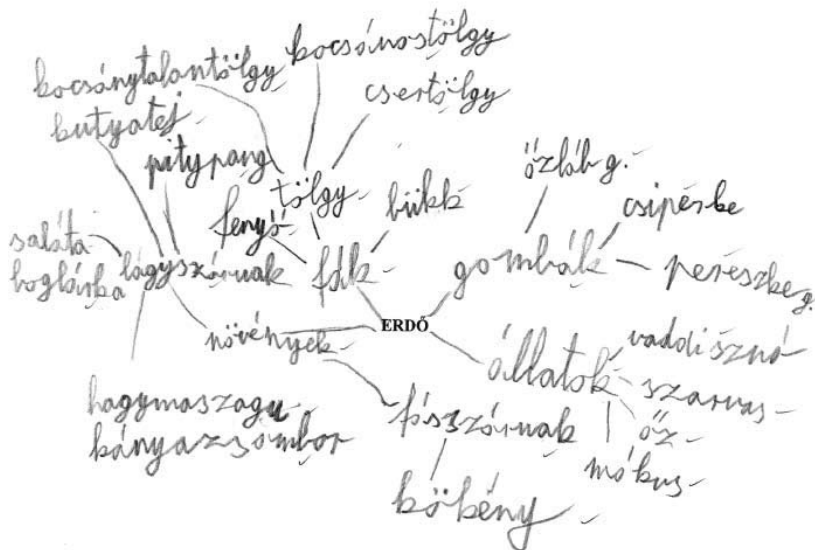 kocsánytalantölgy
kocsánostölgy
csertölgy
kutyatej
pitypang
tölgy
fenyő
bükk
őzláb g.
csipérke
saláta
boglárka
lágyszárúak
fák
gombák
pereszke g.
növények
ERDŐ
állatok
vaddisznó
szarvas
őz
mókus
hagymaszagu
kányazsombor
fásszárúak
kökény